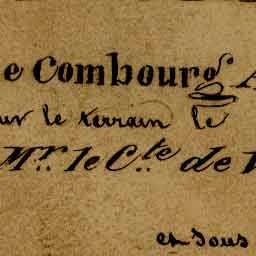 e Combourg A
ur le terrain le
Mr. le Cte. de V
et sous